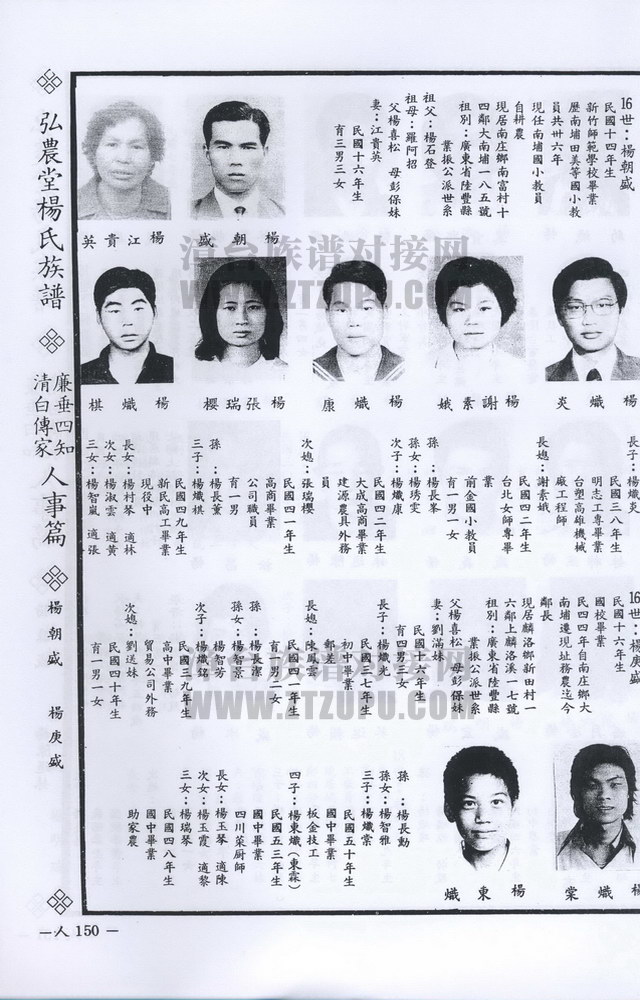 弘農堂楊氏族譜
廉垂四知
清白傳家
人事篇
楊朝盛 楊庚盛
一人 150 一
16世：楊朝盛
民國十四年生
新竹師範學校畢業
歷南埔田美等國小教
員共卅六年
現任南埔國小教員
自耕農
現居南庄鄉南富村十
四鄰大南埔一八五號
祖別：廣東省陸豐縣
業振公派世系
祖父：楊石登
祖母：羅阿招
父楊喜松 母彭保妹
妻：江貴英
民國十六年生
育三男三女
楊朝盛
楊江貴英
楊熾炎
楊謝素娥
楊熾康
楊張瑞櫻
楊熾棋
長子：楊熾炎
民國三八年生
明志工專畢業
台塑高雄機械
廠工程師
長媳：謝素娥
民國四二年生
台北女師專畢
業
前金國小教員
育一男一女
孫：楊長峯
孫女：楊琇雯
次子：楊熾康
民國四二年生
大成高商畢業
建源農具外務
員
次媳：張瑞櫻
民國四一年生
高商畢業
公司職員
育一男
孫：楊長薰
三子：楊熾棋
民國四九年生
新民高工畢業
現役中
長女：楊村琴 適林
次女：楊淑雲 適黃
三女：楊智嵐 適張
16世：楊庚盛
民國十六年生
國校畢業
民四四年自南庄鄉大
南埔遷現址務農迄今
鄰長
現居麟洛鄉新田村一
六鄰上麟洛溪一七號
祖別：廣東省陸豐縣
業振公派世系
父楊喜松 母彭保妹
妻：劉滿妹
民國十六年生
育四男三女
長子：楊熾光
民國三七年生
初中畢業
郵差
長媳：陳鳳雲
民國四一年生
育一男二女
孫：楊長潔
孫女：楊智景
楊智芳
次子：楊熾銘
民國三九年生
高中畢業
貿易公司外務
次媳：劉送妹
民國四十年生
育一男一女
孫：楊長勳
孫女：楊智雅
三子：楊熾棠
民國五十年生
國中畢業
板金技工
四子：楊東熾（東霖）
民國五三年生
國中畢業
四川菜厨師
長女：楊玉琴 適陳
次女：楊玉霞 適黎
三女：楊瑞琴
民國四八年生
國中畢業
助家農
楊熾棠
楊東熾
清台族谱对接网
WWW.ZTZUPU.COM
清台族谱对接网
WWW.ZTZUPU.COM